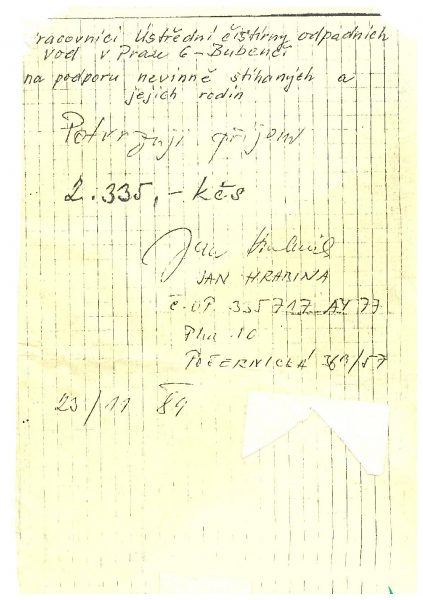 Pracovníci Ústřední čistírny odpadních
vod v Praze 6 - Bubenči
na podporu nevinně stíhaných a
jejich rodin
Potvrzuji příjem
2.335,- kčs
Jan
JAN HRABINA
č. OP. 335717 AY 77
Pha 10
POČERNICKÁ
23/11 89